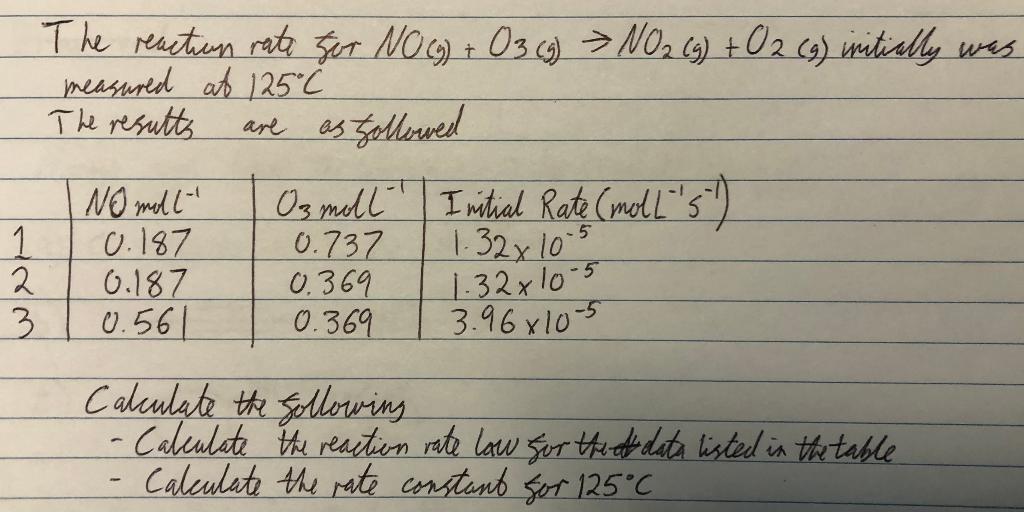 The reaction rate for NO(g) + O3(g) → NO2(g) + O2(g) initially was
measured at 125°C
The results are as followed
NO mol L⁻¹ O3 mol L⁻¹ Initial Rate (mol L⁻¹ s⁻¹)
1 0.187 0.737 1.32 x 10⁻⁵
2 0.187 0.369 1.32 x 10⁻⁵
3 0.561 0.369 3.96 x 10⁻⁵
Calculate the following
- Calculate the reaction rate law for the data listed in the table
- Calculate the rate constant for 125°C